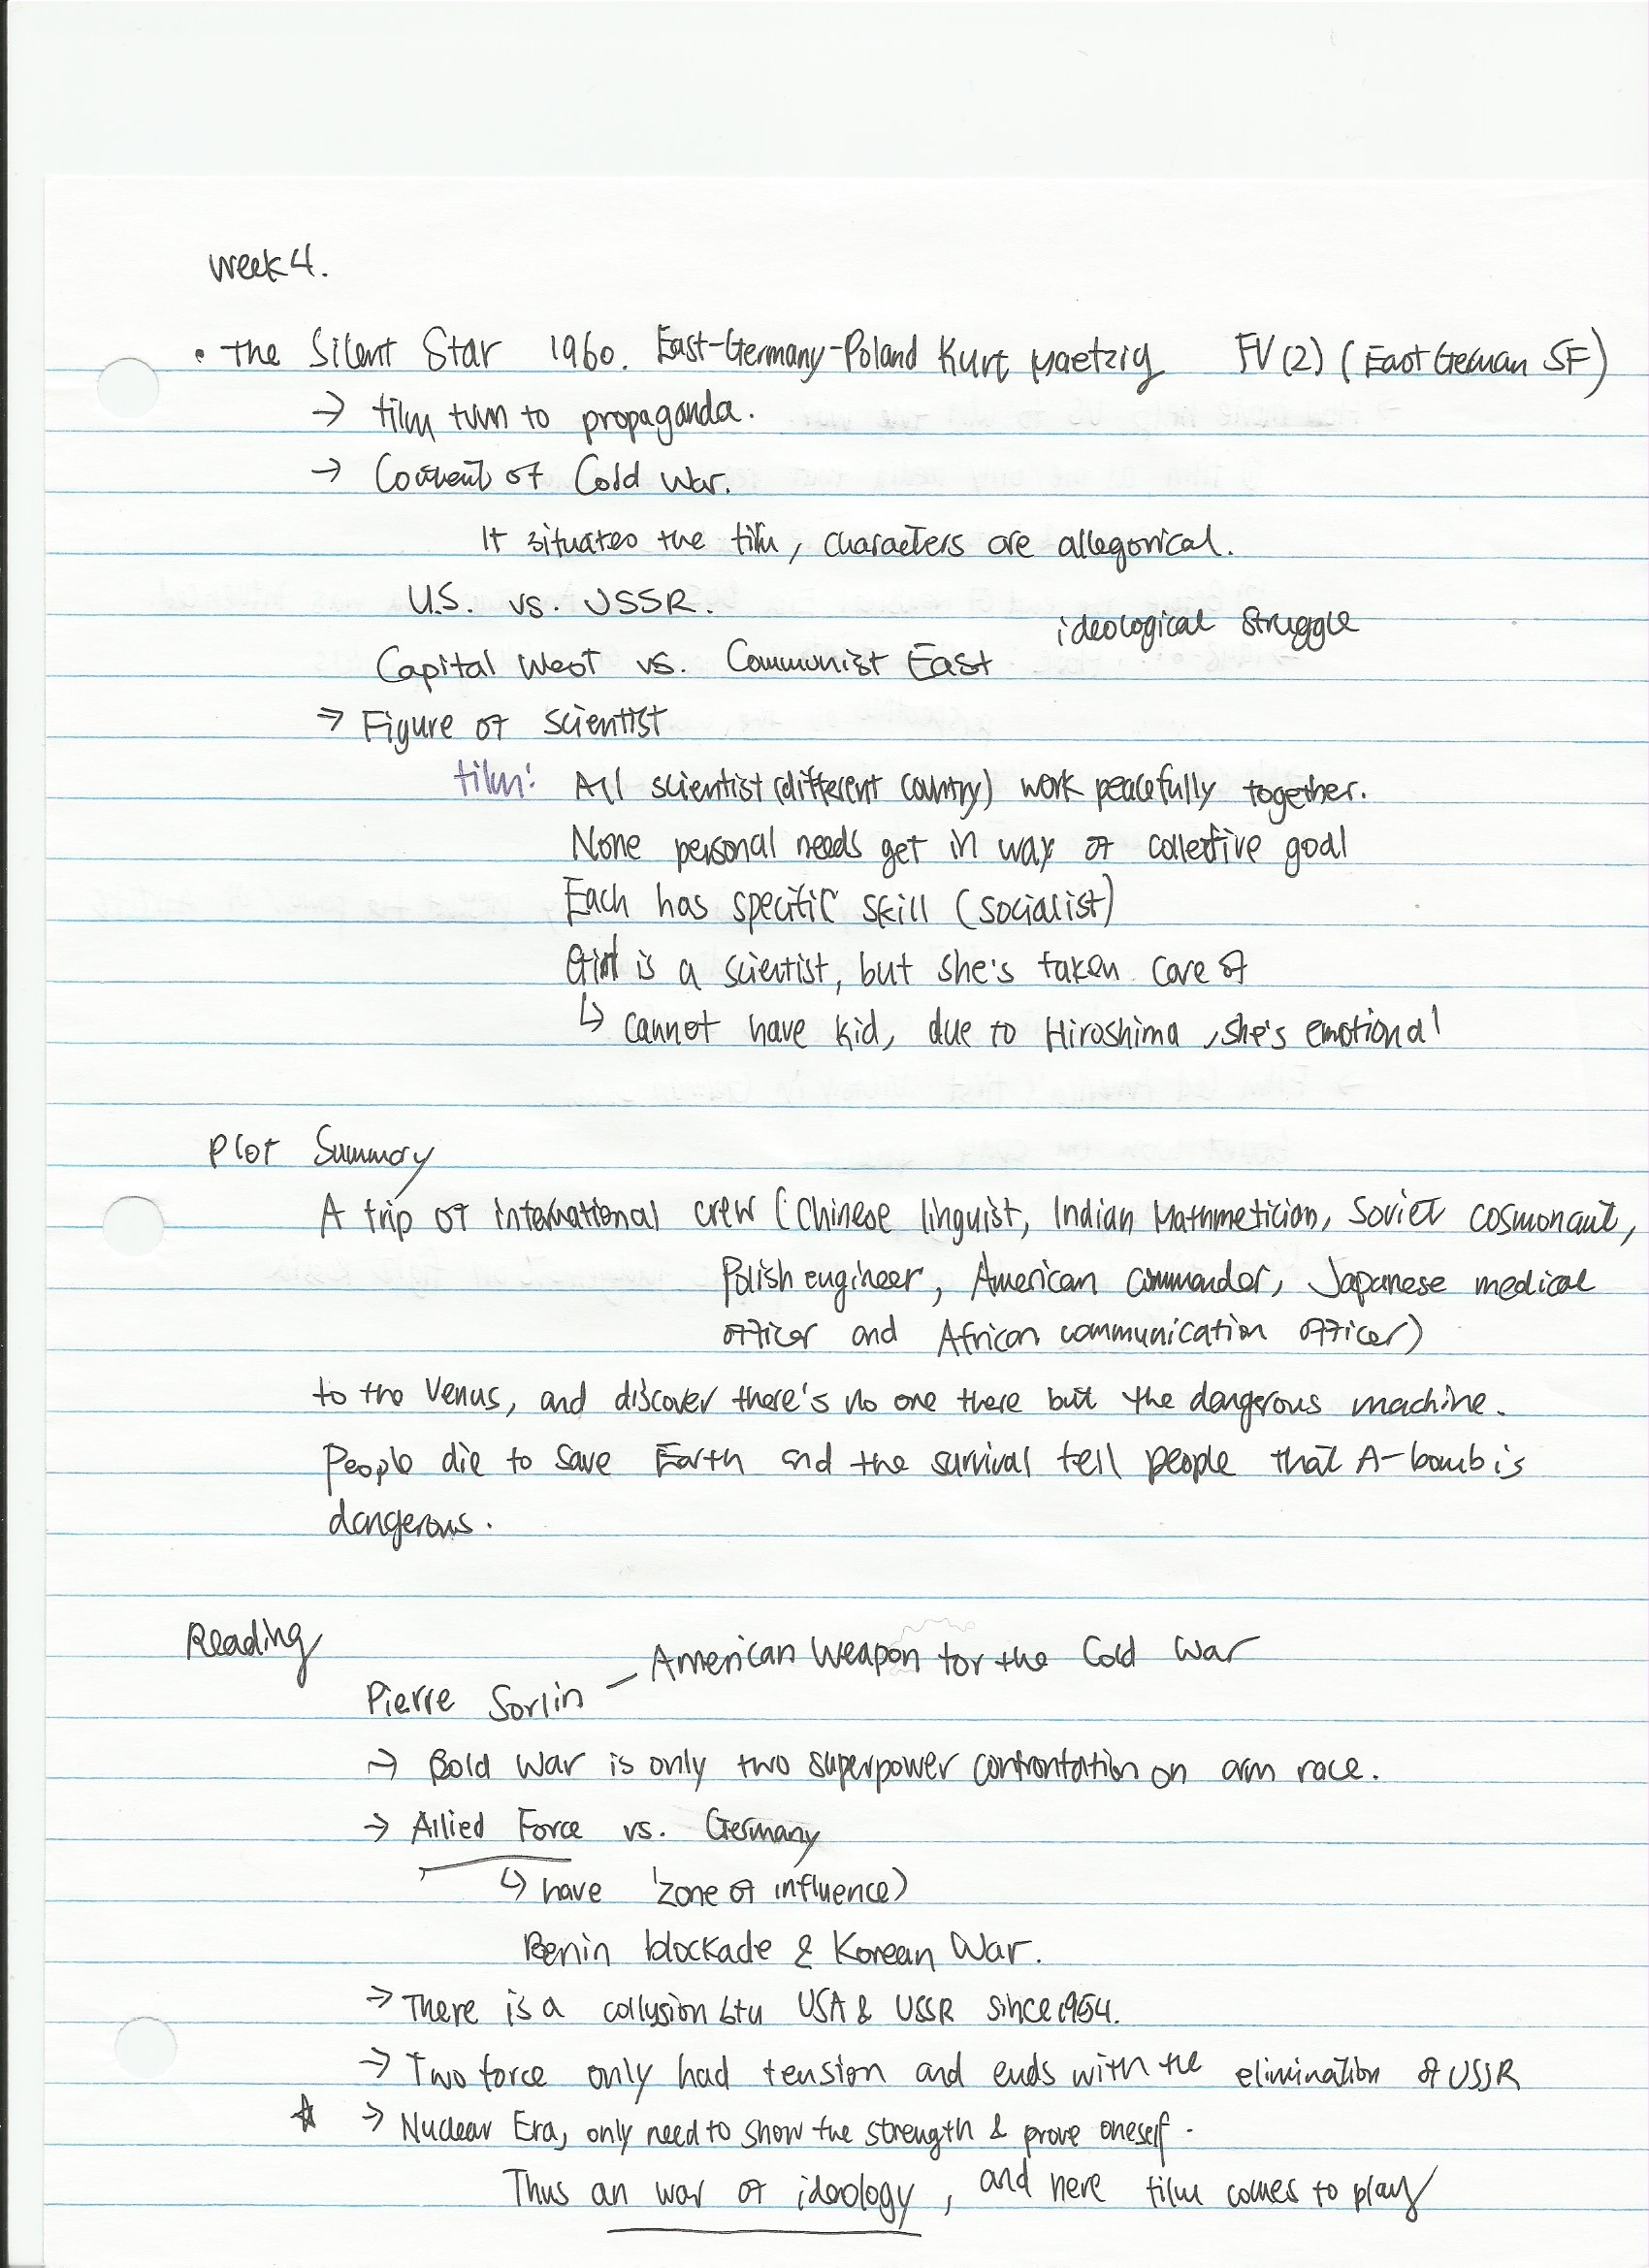 week 4.
• the Silent Star 1960. East-Germany-Poland Kurt Maetzig FV (2) (East German SF)
→ film turn to propaganda.
→ Content of Cold War.
It situates the film, characters are allegorical.
U.S. vs. USSR.
ideological struggle
Capital West vs. Communist East
⇒ Figure of scientist
film: All scientist (different country) work peacefully together.
None personal needs get in way of collective goal
Each has specific skill (socialist)
Girl is a scientist, but she's taken care of
↳ cannot have kid, due to Hiroshima, she's emotional
Plot Summary
A trip of international crew (Chinese linguist, Indian Mathmetician, Soviet cosmonaut,
Polish engineer, American commander, Japanese medical
officer and African communication officer)
to the Venus, and discover there's no one there but the dangerous machine.
People die to save Earth and the survival tell people that A-bomb is
dangerous.
Reading
Pierre Sorlin – American Weapon for the Cold War
→ Cold War is only two superpower confrontation on arm race.
→ Allied Force vs. Germany
↳ have 'zone of influence)
Berlin blockade & Korean War.
→ There is a collusion btw USA & USSR since 1954.
→ Two force only had tension and ends with the elimination of USSR
☆ → Nuclear Era, only need to show the strength & prove oneself.
Thus an war of ideology, and here film comes to play